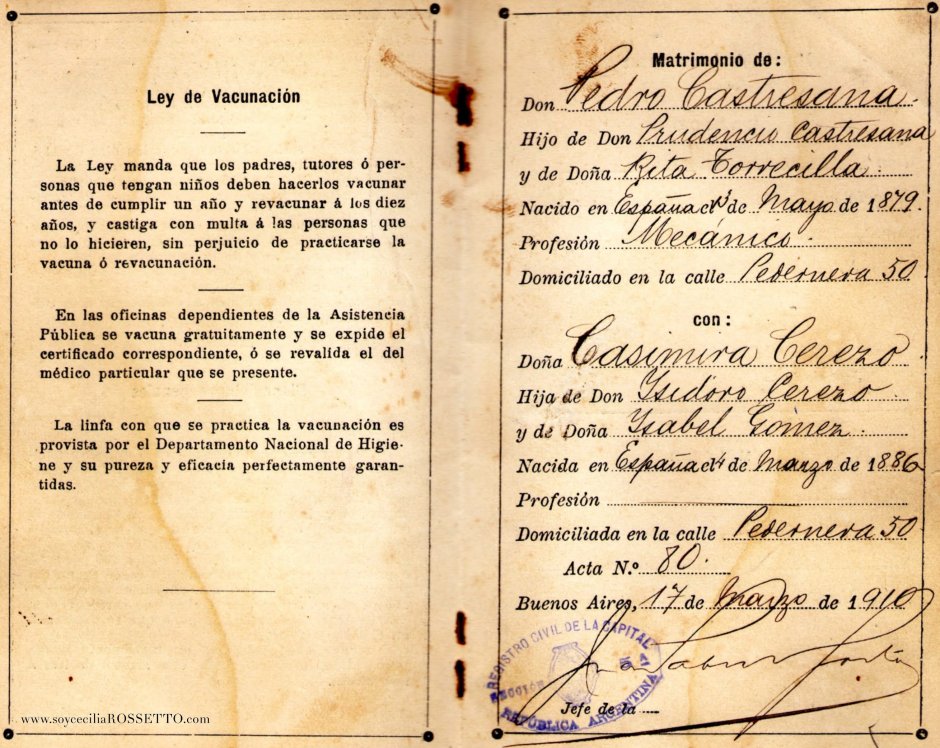 Ley de Vacunación
La Ley manda que los padres, tutores ó per-
sonas que tengan niños deben hacerlos vacunar
antes de cumplir un año y revacunar á los diez
años, y castiga con multa á las personas que
no lo hicieren, sin perjuicio de practicarse la
vacuna ó revacunación.
En las oficinas dependientes de la Asistencia
Pública se vacuna gratuitamente y se expide el
certificado correspondiente, ó se revalida el del
médico particular que se presente.
La linfa con que se practica la vacunación es
provista por el Departamento Nacional de Higie-
ne y su pureza y eficacia perfectamente garan-
tidas.
www.soyceciliaROSSETTO.com
Matrimonio de:
Don Pedro Castresana
Hijo de Don Prudencio Castresana
y de Doña Rita Torrecilla
Nacido en España el de Mayo de 1879
Profesión Mecánico
Domiciliado en la calle Pedernera 50
con:
Doña Casimira Cerezo
Hija de Don Isidoro Cerezo
y de Doña Ysabel Gómez
Nacida en España el 4 de Marzo de 1886
Profesión
Domiciliada en la calle Pedernera 50
Acta N.º 80
Buenos Aires, 17 de Marzo de 1910
REGISTRO CIVIL DE LA CAPITAL
REPÚBLICA ARGENTINA
Jefe de la